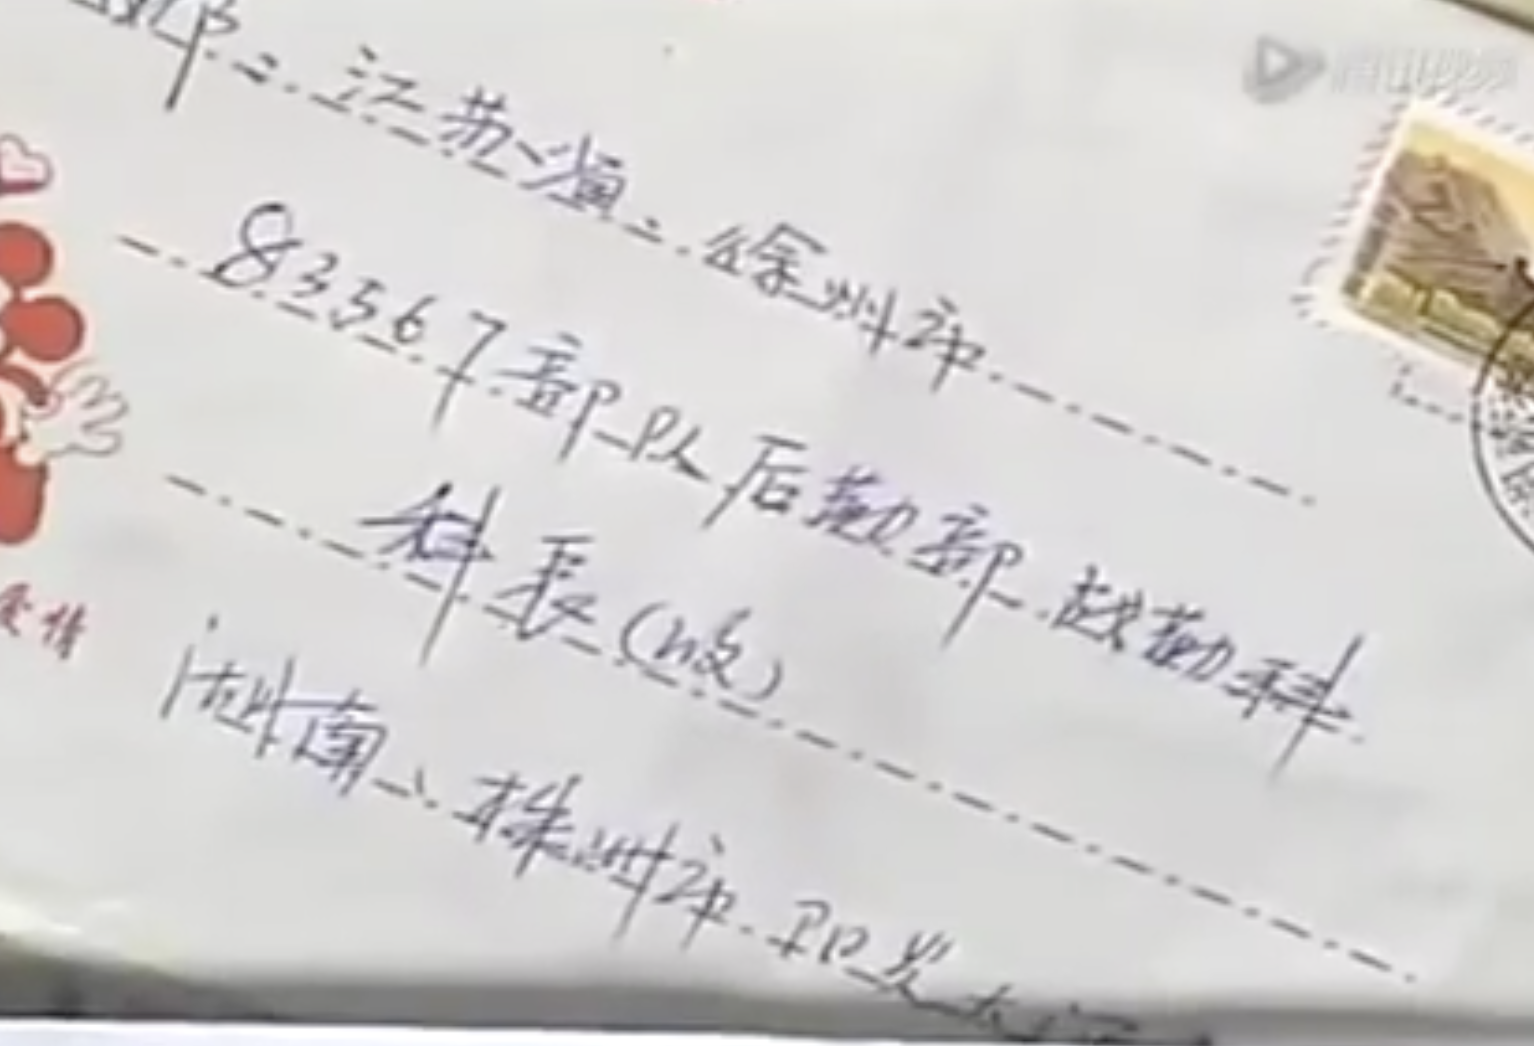 江苏省 徐州市
83567部队后勤部战勤科
科长(收)
湖南 株洲市
爱情